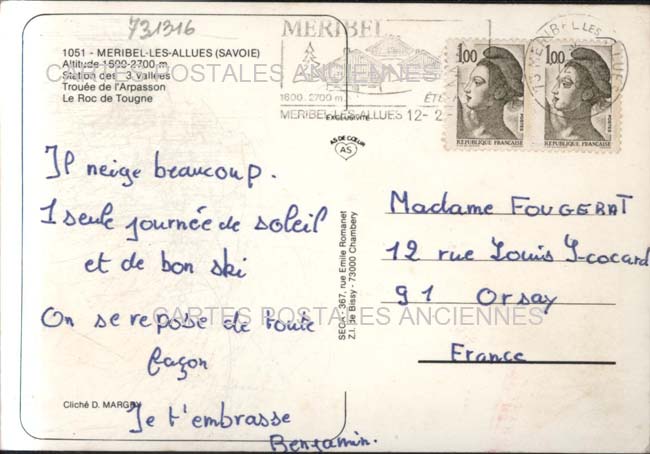 731316
1051 - MERIBEL-LES-ALLUES (SAVOIE)
Altitude 1600-2700 m
Station des 3 Vallées
Trouée de l'Arpasson
Le Roc de Tougne
MERIBEL
1600.2700 m
MERIBEL-LES-ALLUES 12-2-
73 MERIBEL LES ALLUES
1,00
POSTES
REPUBLIQUE FRANÇAISE
1,00
POSTES
REPUBLIQUE FRANÇAISE
CARTES POSTALES ANCIENNES
EXCLUSIVITÉ
AS DE CŒUR
AS
Il neige beaucoup.
1 seule journée de soleil
et de bon ski
On se repose de toute
façon
Je t'embrasse
Benjamin.
Cliché D. MARGRY
SECA - 367, rue Emile Romanet
Z.I. de Bissy - 73000 Chambery
Madame FOUGERAT
12 rue Louis
91 Orsay
CARTES POSTALES ANCIENNES
France